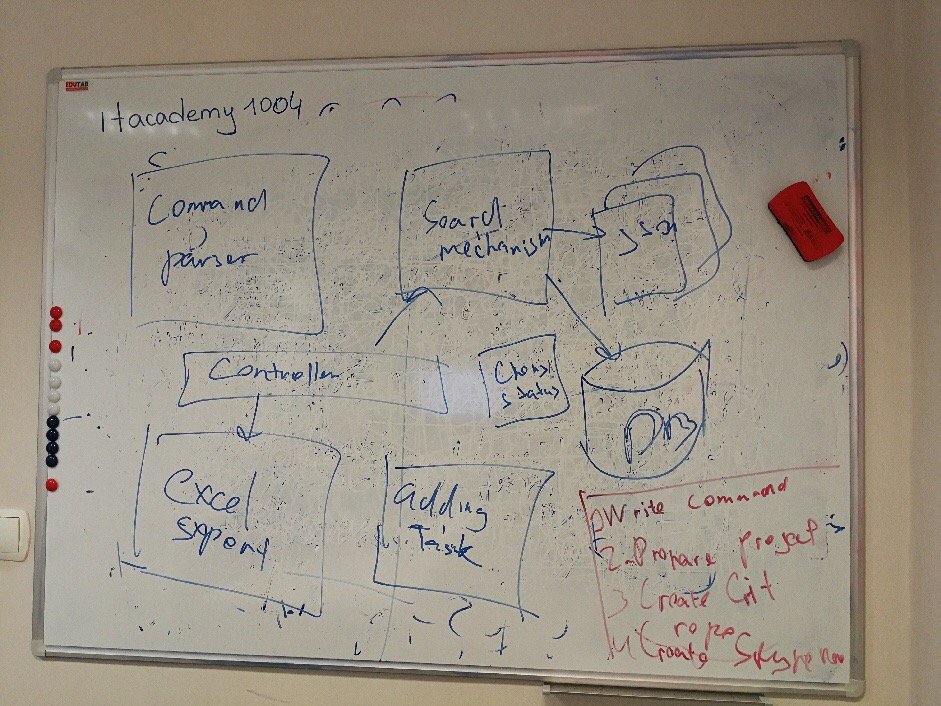 EDUTAB
Itacademy 1004
Command
parser
Search
mechanism
JSON
Controller
status
DB
Excel
export
adding
Task
1) Write command
2. Prepare project
3 Create Git
repo
4 Create Skype